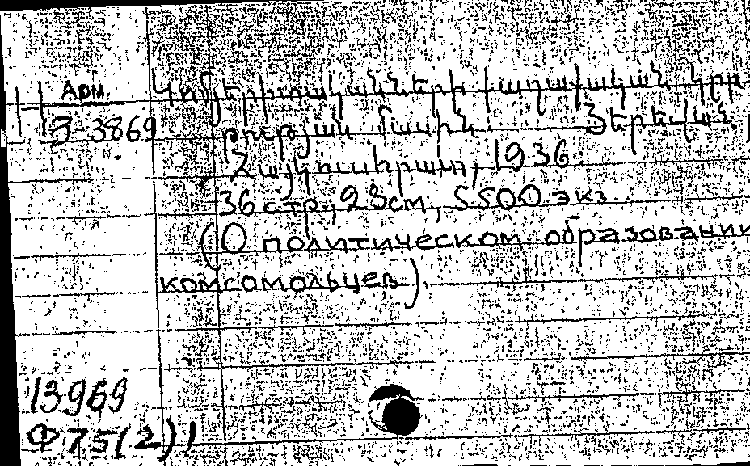 Арм.
Կոմյերիտականների քաղաքական կրթ
3-3869
թության մասին. Յերեվան,
Հայկուսհրատ, 1936.
36 стр, 23см, 5500 экз.
(О политическом образовании
комсомольцев).
13969
Ф75(2)1